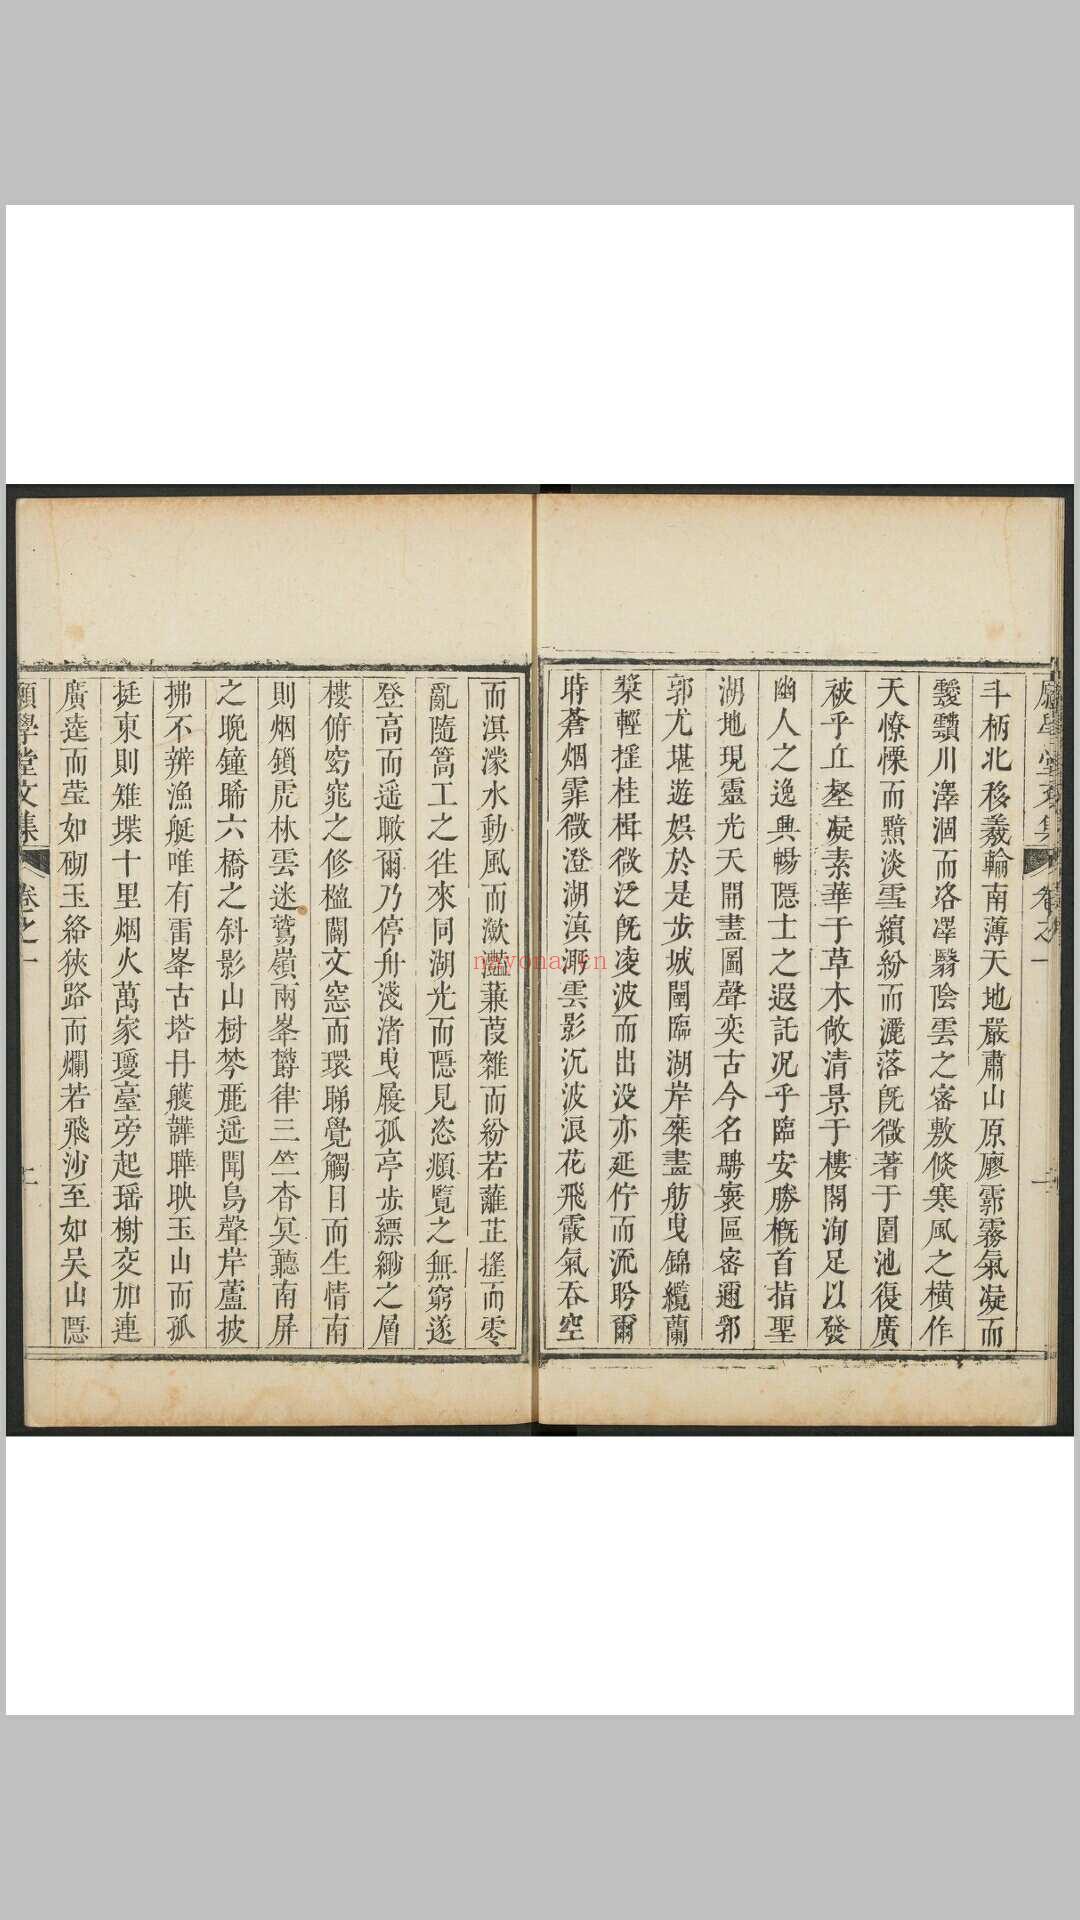 斗柄北移羲輪南薄天地嚴肅山原廖霩霧氣凝而
靉靆川澤涸而洛澤翳陰雲之密敷倐寒風之橫作
天憭慄而黯淡雪繽紛而灑落旣微著于園池復廣
被乎丘壑凝素華于草木敞清景于樓閣洵足以發
幽人之逸興暢隱士之遐託况乎臨安勝槪首指聖
湖地現靈光天開畫圖聲奕古今名騁寰區密邇郛
郭尤堪遊娛於是步城闉臨湖岸棄畫舫曳錦纜蘭
槳輕搖桂楫微泛旣凌波而出没亦延佇而流盻爾
時蒼烟霏微澄湖滇溮雲影沉波浪花飛霰氣吞空
而溟濛水動風而瀲灩蒹葭雜而紛若蘺芷搖而零
亂隨篙工之徃來同湖光而隱見恣頫覽之無窮遂
登高而遥瞰爾乃停舟淺渚曳屐孤亭步縹緲之層
樓俯窈窕之修楹闢文窓而環睇覺觸目而生情南
則烟鎖虎林雲迷鷲嶺兩峯欝律三竺杳冥聽南屏
之晩鐘晞六橋之斜影山樹棼麗遥聞鳥聲岸蘆披
拂不辨漁艇唯有雷峯古塔丹艧韡曄映玉山而孤
挺東則雉堞十里烟火萬家瓊臺旁起瑶榭交加連
廣逵而莹如砌玉絡狹路而爛若飛沙至如吴山隱
願學堂文集
卷之一
nayona.cn